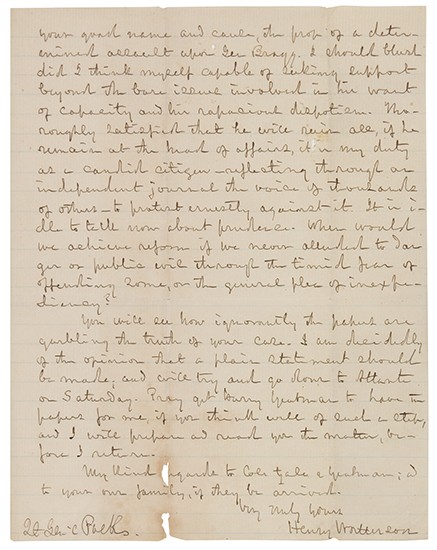 your good name and cause, the prop of a deter-
mined assault upon Gen Bragg. I should blush
did I think myself capable of seeking support
beyond the bare issue involved in his want
of capacity and his rapacious dispotism. Tho-
roughly satisfied that he will ruin all, if he
remain at the head of affairs, it is my duty
as a candid citizen—reflecting through an
independent journal the voice of thousands
of others—to protest earnestly against it. It is i-
dle to talk now about prudence. When would
we achieve reform if we never attended to dan-
ger or public evil through the timid fear of
offending some, or the general plea of inexpe-
diency?
You will see how ignorantly the papers are
garbling the truth of your case. I am decidedly
of the opinion that a plain statement should
be made; and will try and go down to Atlanta
on Saturday. Pray get Harry Yeatman to have the
papers for me, if you think well of such a step,
and I will prepare and read you the matter, be-
fore I return.
My kind regards to Cols Gale & Yeatman; &
to your own family, if they be arrived.
Very truly yours
Henry Watterson
Lt Gen'l Polk.